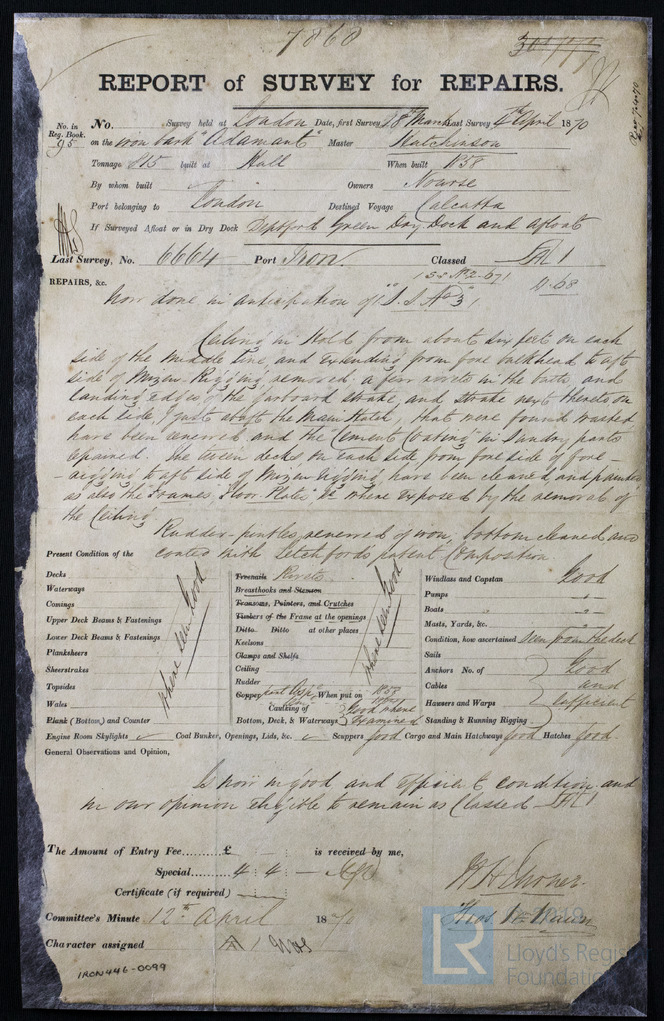 7868
REPORT of SURVEY for REPAIRS.
No. in Reg. Book. 95
No. Survey held at London Date, first Survey 18th March Last Survey 4th April 1870
on the iron bark "Adamant" Master Hutchinson
Tonnage 815 built at Hull When built 1858
By whom built Owners Nourse
Port belonging to London Destined Voyage Calcutta
If Surveyed Afloat or in Dry Dock Deptford Green Dry Dock and afloat
Last Survey, No. 6664 Port Iron. Classed A 1
REPAIRS, &c.
Now done in anticipation of "S.S. No 3"
Ceiling in Hold from about six feet on each
side of the middle line, and extending from fore bulkhead to aft
side of Mizen Rigging removed: a few rivets in the butts and
landing edges of the garboard strake, and strake next thereto on
each side, just abaft the Main Hatch, that were found wasted
have been renewed and the Cement Coating in Sundry parts
repaired. The tween decks on each side from fore side of fore-
rigging to aft side of Mizen rigging have been cleaned and painted
as also the Frames, Floor Plates &c where exposed by the removal of
the Ceiling
Rudder-pintles renewed of iron, bottom cleaned and
coated with Letchfords patent Composition
Present Condition of the
Decks
Waterways
Comings
Upper Deck Beams & Fastenings
Lower Deck Beams & Fastenings
Plankshears
Sheerstrakes
Topsides
Wales
Plank (Bottom) and Counter
where seen Good
Treenails Rivets
Breasthooks and Stemson
Transoms, Pointers, and Crutches
Timbers of the Frame at the openings
Ditto Ditto at other places
Keelsons
Clamps and Shelfs
Ceiling
Rudder
Copper When put on
Caulking of
Bottom, Deck, & Waterways
Good where
Examined
where seen Good
Windlass and Capstan Good
Pumps
Boats
Masts, Yards, &c.
Condition, how ascertained Seen from the deck
Sails
Anchors No. of
Cables
Hawsers and Warps
Standing & Running Rigging
Good
and
Sufficient
Engine Room Skylights Coal Bunker, Openings, Lids, &c. Scuppers good Cargo and Main Hatchways good Hatches good.
General Observations and Opinion,
Is now in good and efficient condition and
in our opinion eligible to remain as Classed A 1
The Amount of Entry Fee......£ is received by me,
Special...... 4 : 4 : —
Certificate (if required)
Committee's Minute 12th April 1870
Character assigned A 1
IRON446-0099
© 2019
LR
Lloyd's Register
Foundation